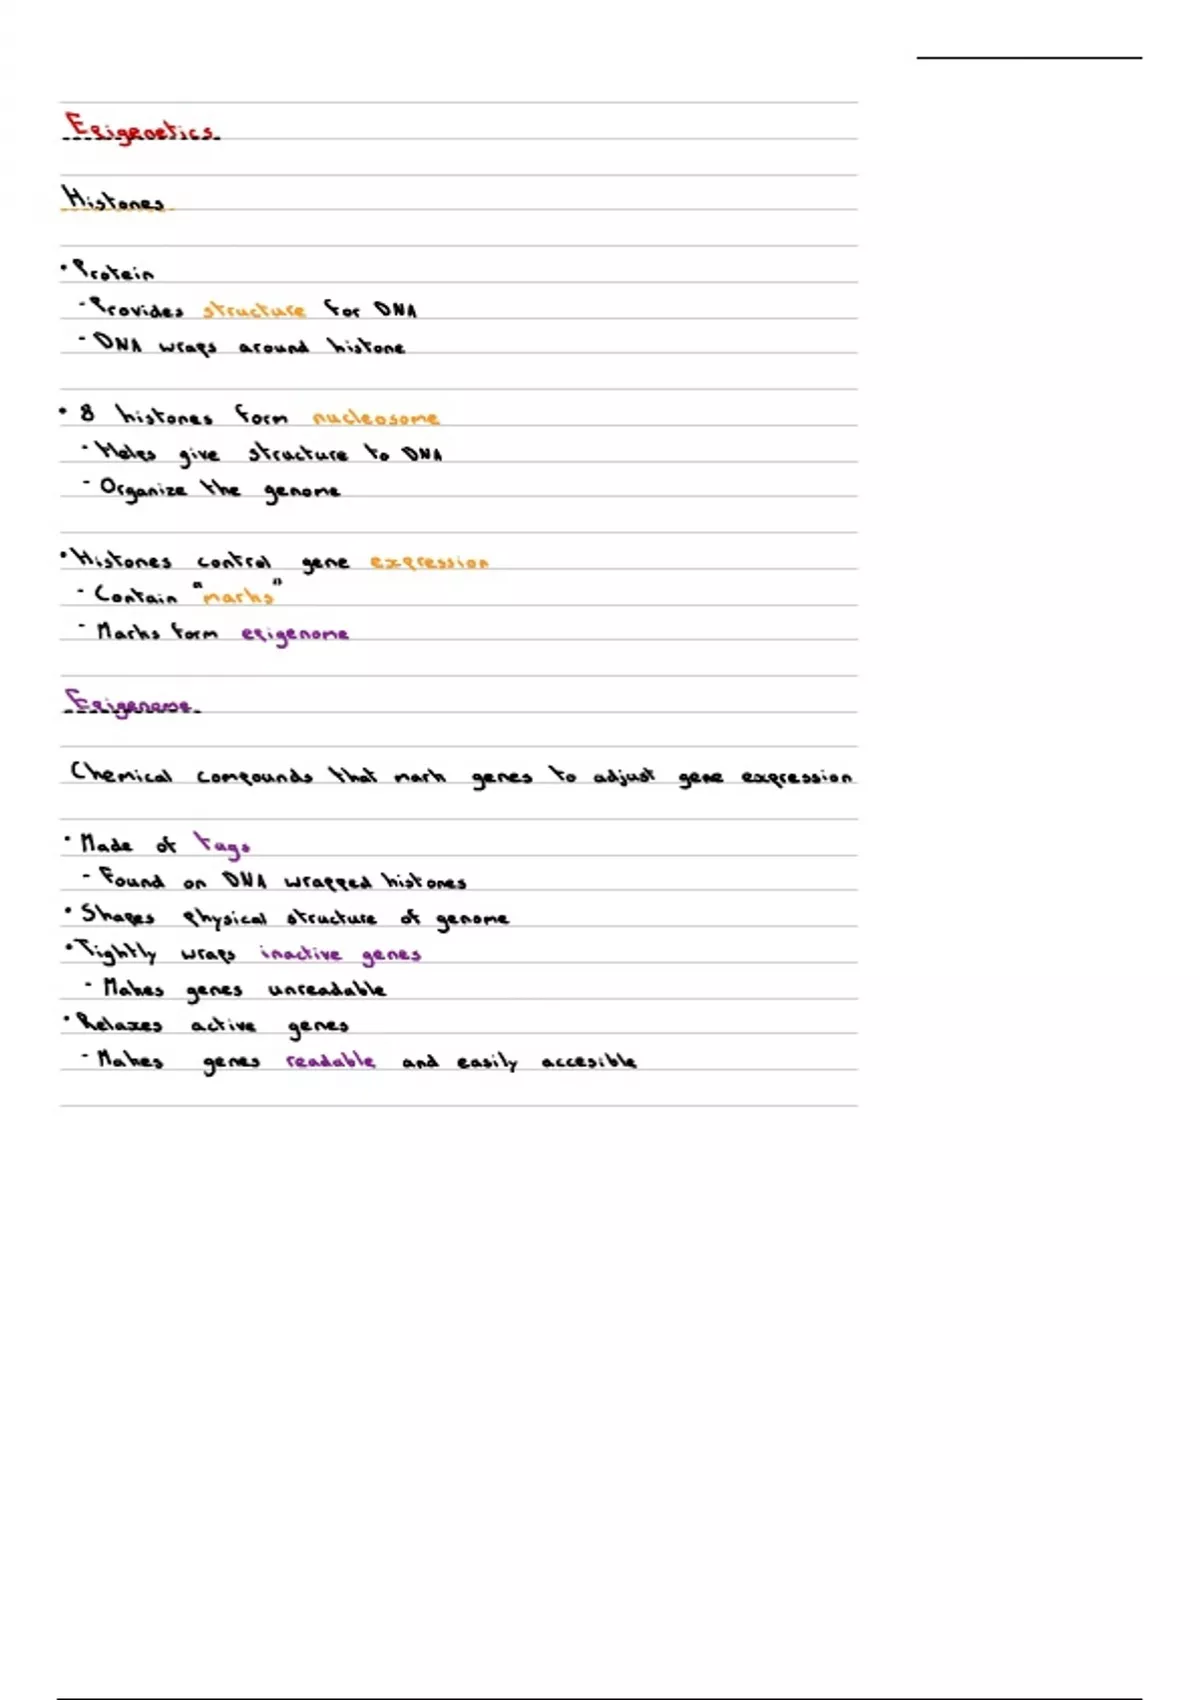 Epigenetics
Histones
• Protein
- Provides structure for DNA
- DNA wraps around histone
• 8 histones form nucleosome
- Helps give structure to DNA
- Organize the genome
• Histones control gene expression
- Contain "marks"
- Marks form epigenome
Epigenome
Chemical compounds that mark genes to adjust gene expression
• Made of tags
- Found on DNA wrapped histones
• Shapes physical structure of genome
• Tightly wraps inactive genes
- Makes genes unreadable
• Relaxes active genes
- Makes genes readable and easily accesible